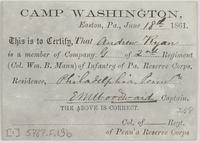 CAMP WASHINGTON,
Easton, Pa., June 18th 1861.
This is to Certify, That Andrew Ryan
is a member of Company G of 2nd Regiment
(Col. Wm. B. Mann) of Infantry of Pa. Reserve Corps.
Residence, Philadelphia Penna
E M Woodward Captain.
THE ABOVE IS CORRECT.
Col. of Regt.
of Penn'a Reserve Corps